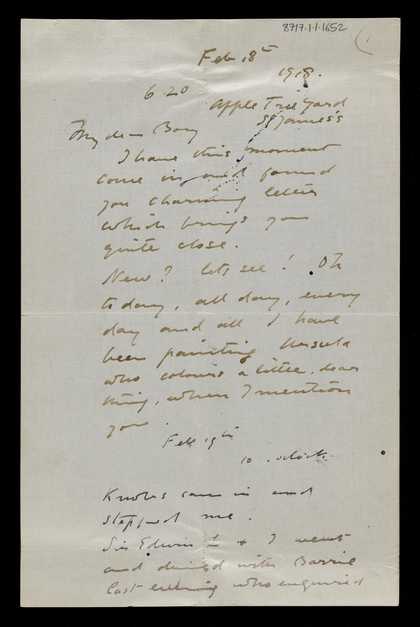 8717.1.1.1652
1
Feb 18th
1918.
6.20
Apple Tree Yard
St James's
My dear Boy
I have this moment
come in and found
your charming letter
which brings you
quite close.
News? Lets see! Oh
to day, all day, every
day and all I have
been painting Ursula
who colours a little, dear
thing, when I mention
you.
Feb 19th
10 . oclock.
Knoles came in and
stopped me.
Sir Edwin L & I went
and dined with Barrie
last evening who enquired